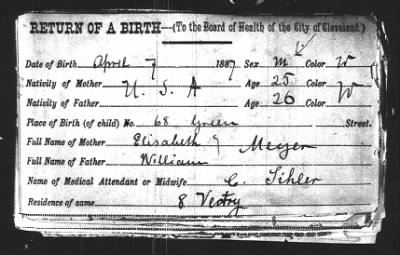 RETURN OF A BIRTH—(To the Board of Health of the City of Cleveland.)
Date of Birth April 7 1887 Sex M Color W
Nativity of Mother U. S. A Age 25 Color W
Nativity of Father Age 26 Color
Place of Birth (of child) No. 68 Green Street.
Full Name of Mother Elisabeth Meyer
Full Name of Father William
Name of Medical Attendant or Midwife C. Sihler
Residence of same 8 Vestry